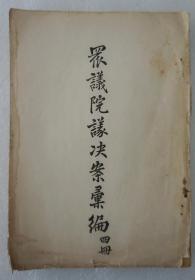 眾議院議決案彙編四冊